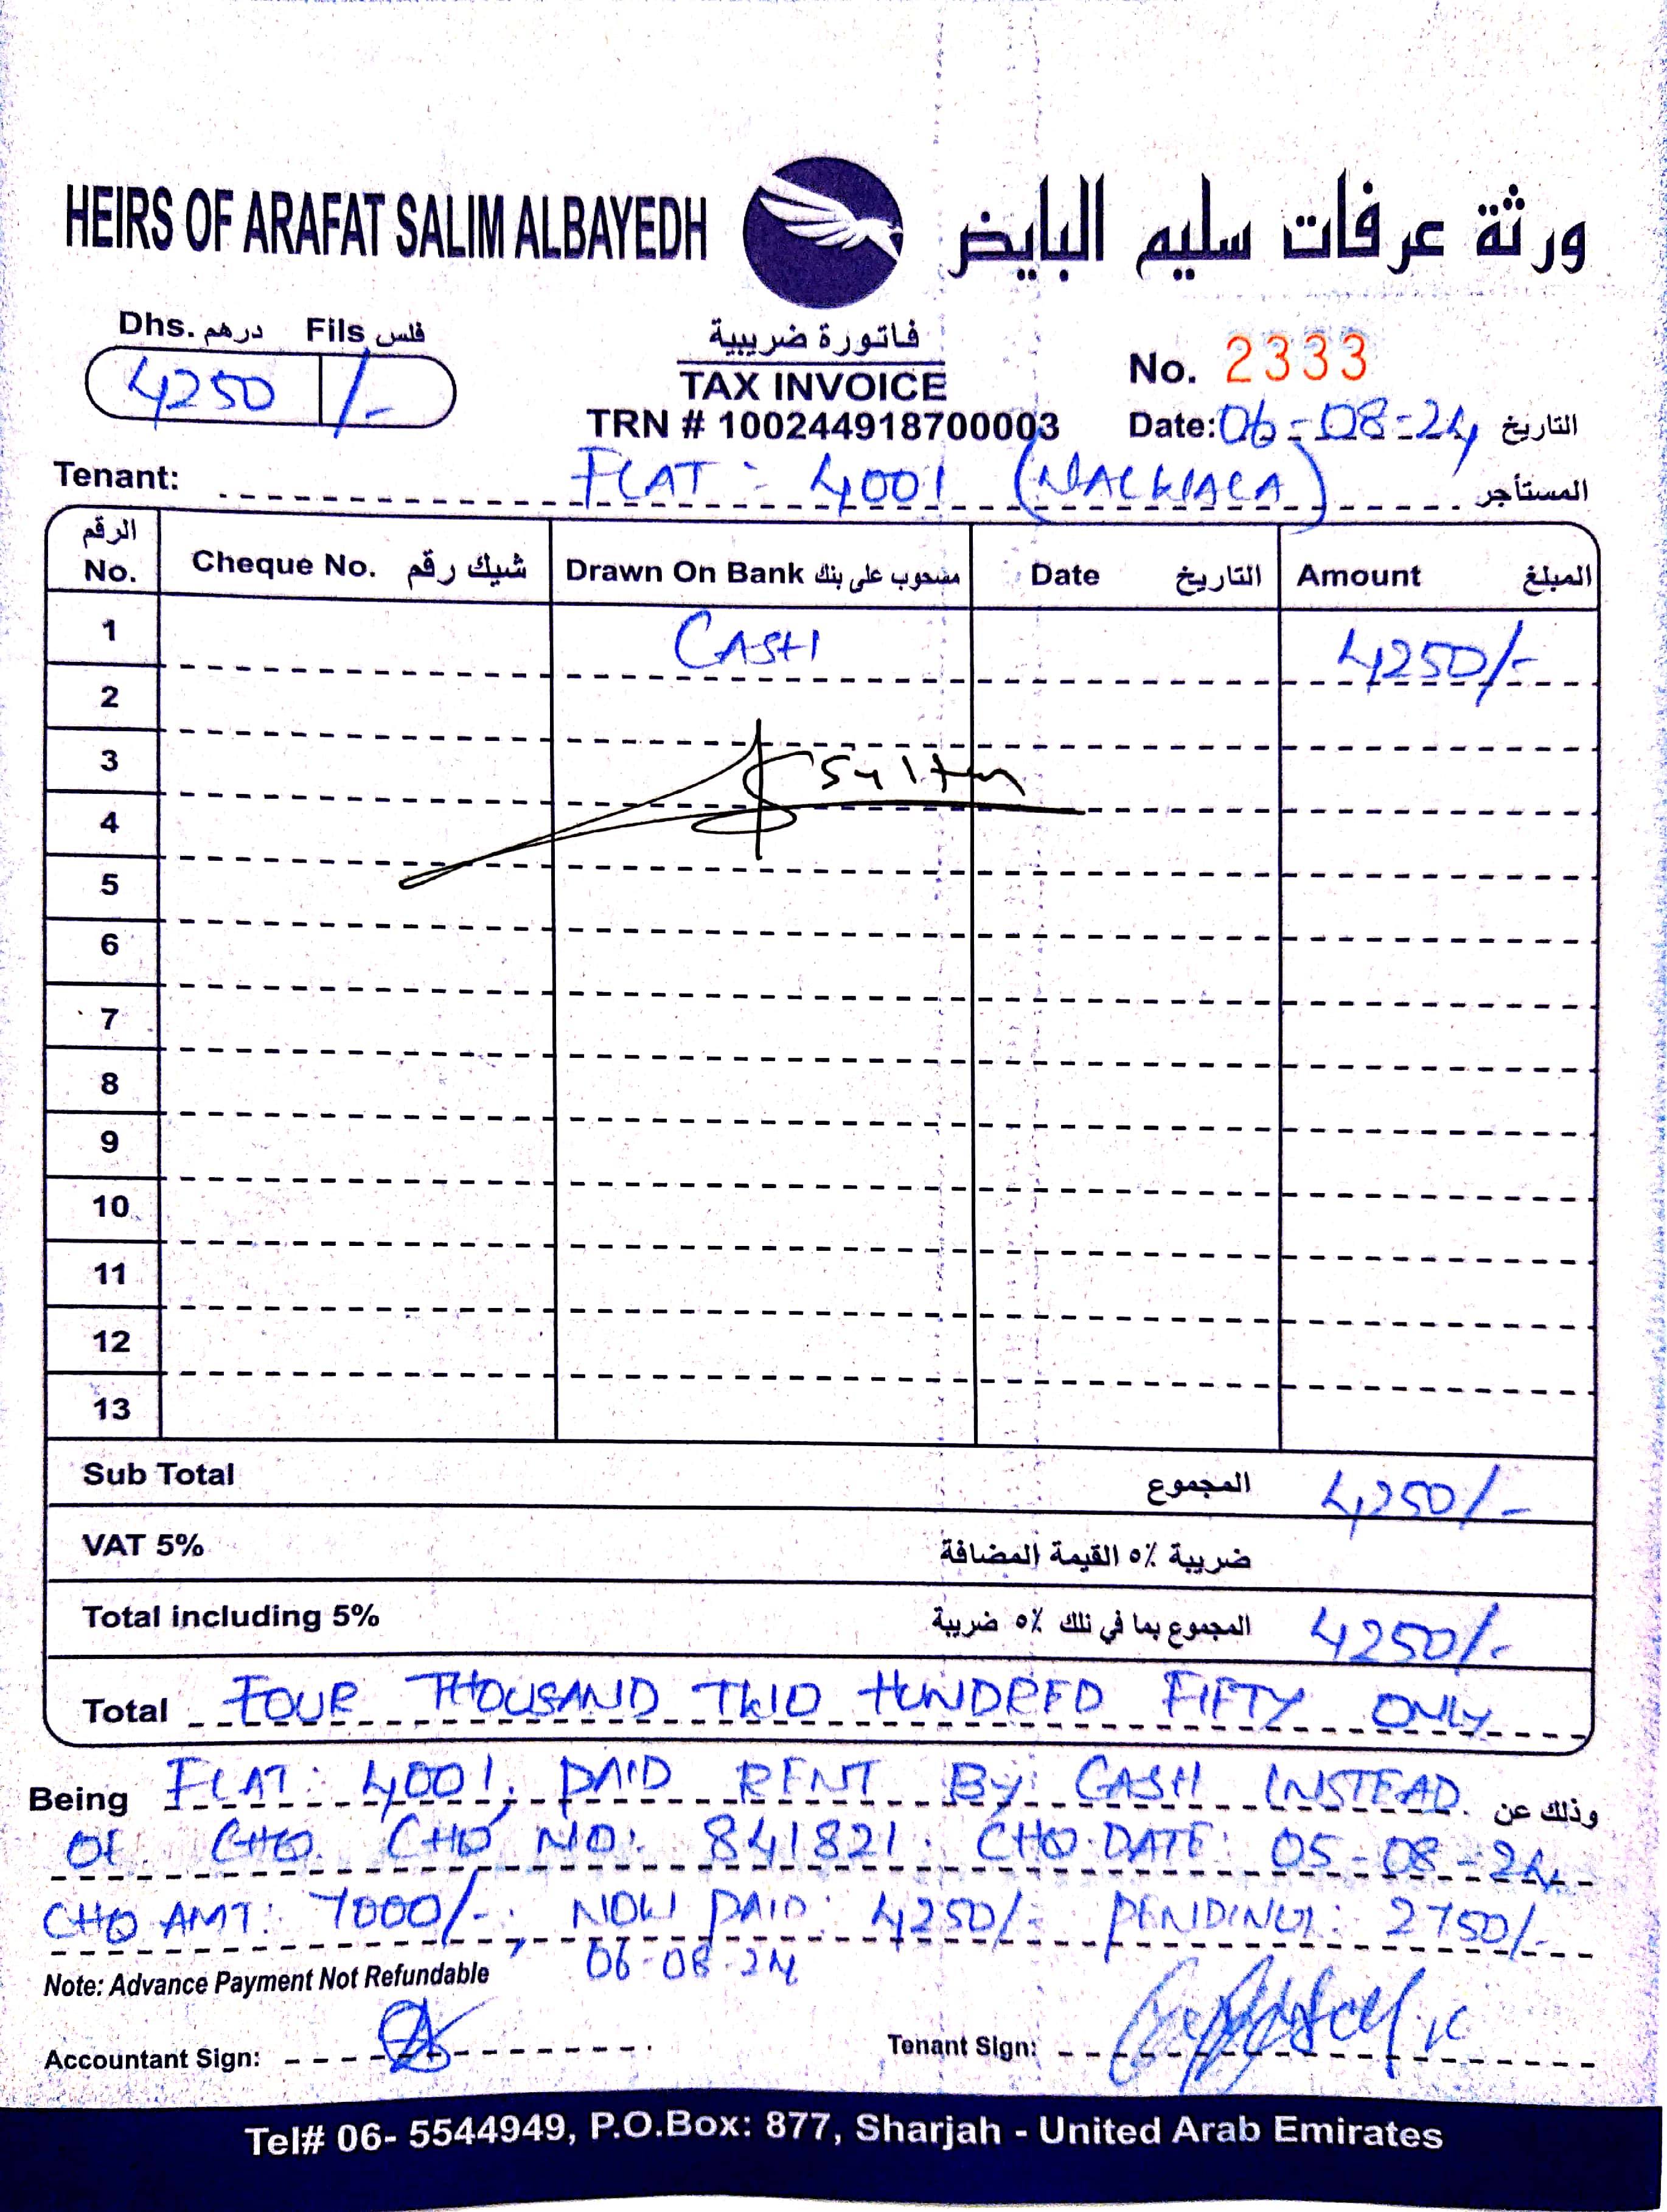 HEIRS OF ARAFAT SALIM ALBAYEDH ورثة عرفات سليم البايض
Dhs. درهم Fils فلس
4250 /-
فاتورة ضريبية
TAX INVOICE
TRN # 100244918700003
No. 2333
Date: 06-08-24 التاريخ
Tenant: FLAT: 4001 (NALWALA) المستأجر
الرقم No. Cheque No. شيك رقم Drawn On Bank مسحوب على بنك Date التاريخ Amount المبلغ
1 CASH 4250/-
2
3 Sultan
4
5
6
7
8
9
10
11
12
13
Sub Total المجموع 4250/-
VAT 5% ضريبة ٥٪ القيمة المضافة
Total including 5% المجموع بما في ذلك ٥٪ ضريبة 4250/-
Total FOUR THOUSAND TWO HUNDRED FIFTY ONLY
Being FLAT: 4001, PAID RENT By: CASH INSTEAD وذلك عن
OF CHQ. CHQ NO: 841821. CHQ.DATE: 05-08-24
CHQ AMT: 7000/-, NOW PAID: 4250/- PENDING: 2750/-
06-08-24
Note: Advance Payment Not Refundable
Accountant Sign: Tenant Sign:
Tel# 06- 5544949, P.O.Box: 877, Sharjah - United Arab Emirates